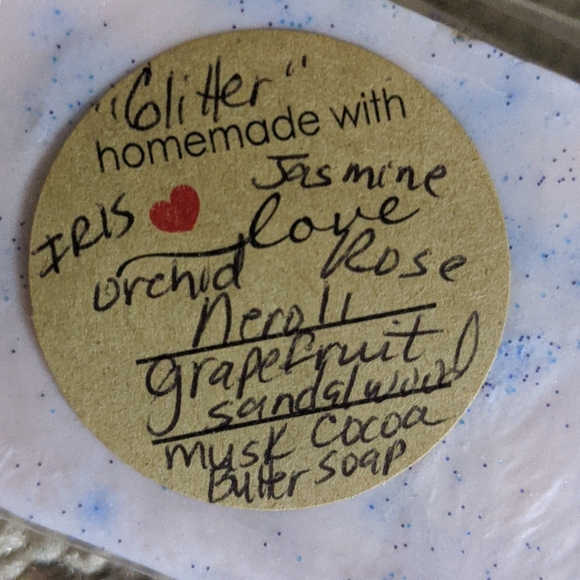 "Glitter"
homemade with
Jasmine
IRIS love
orchid Rose
neroli
grapefruit
sandalwood
musk cocoa
Butter soap